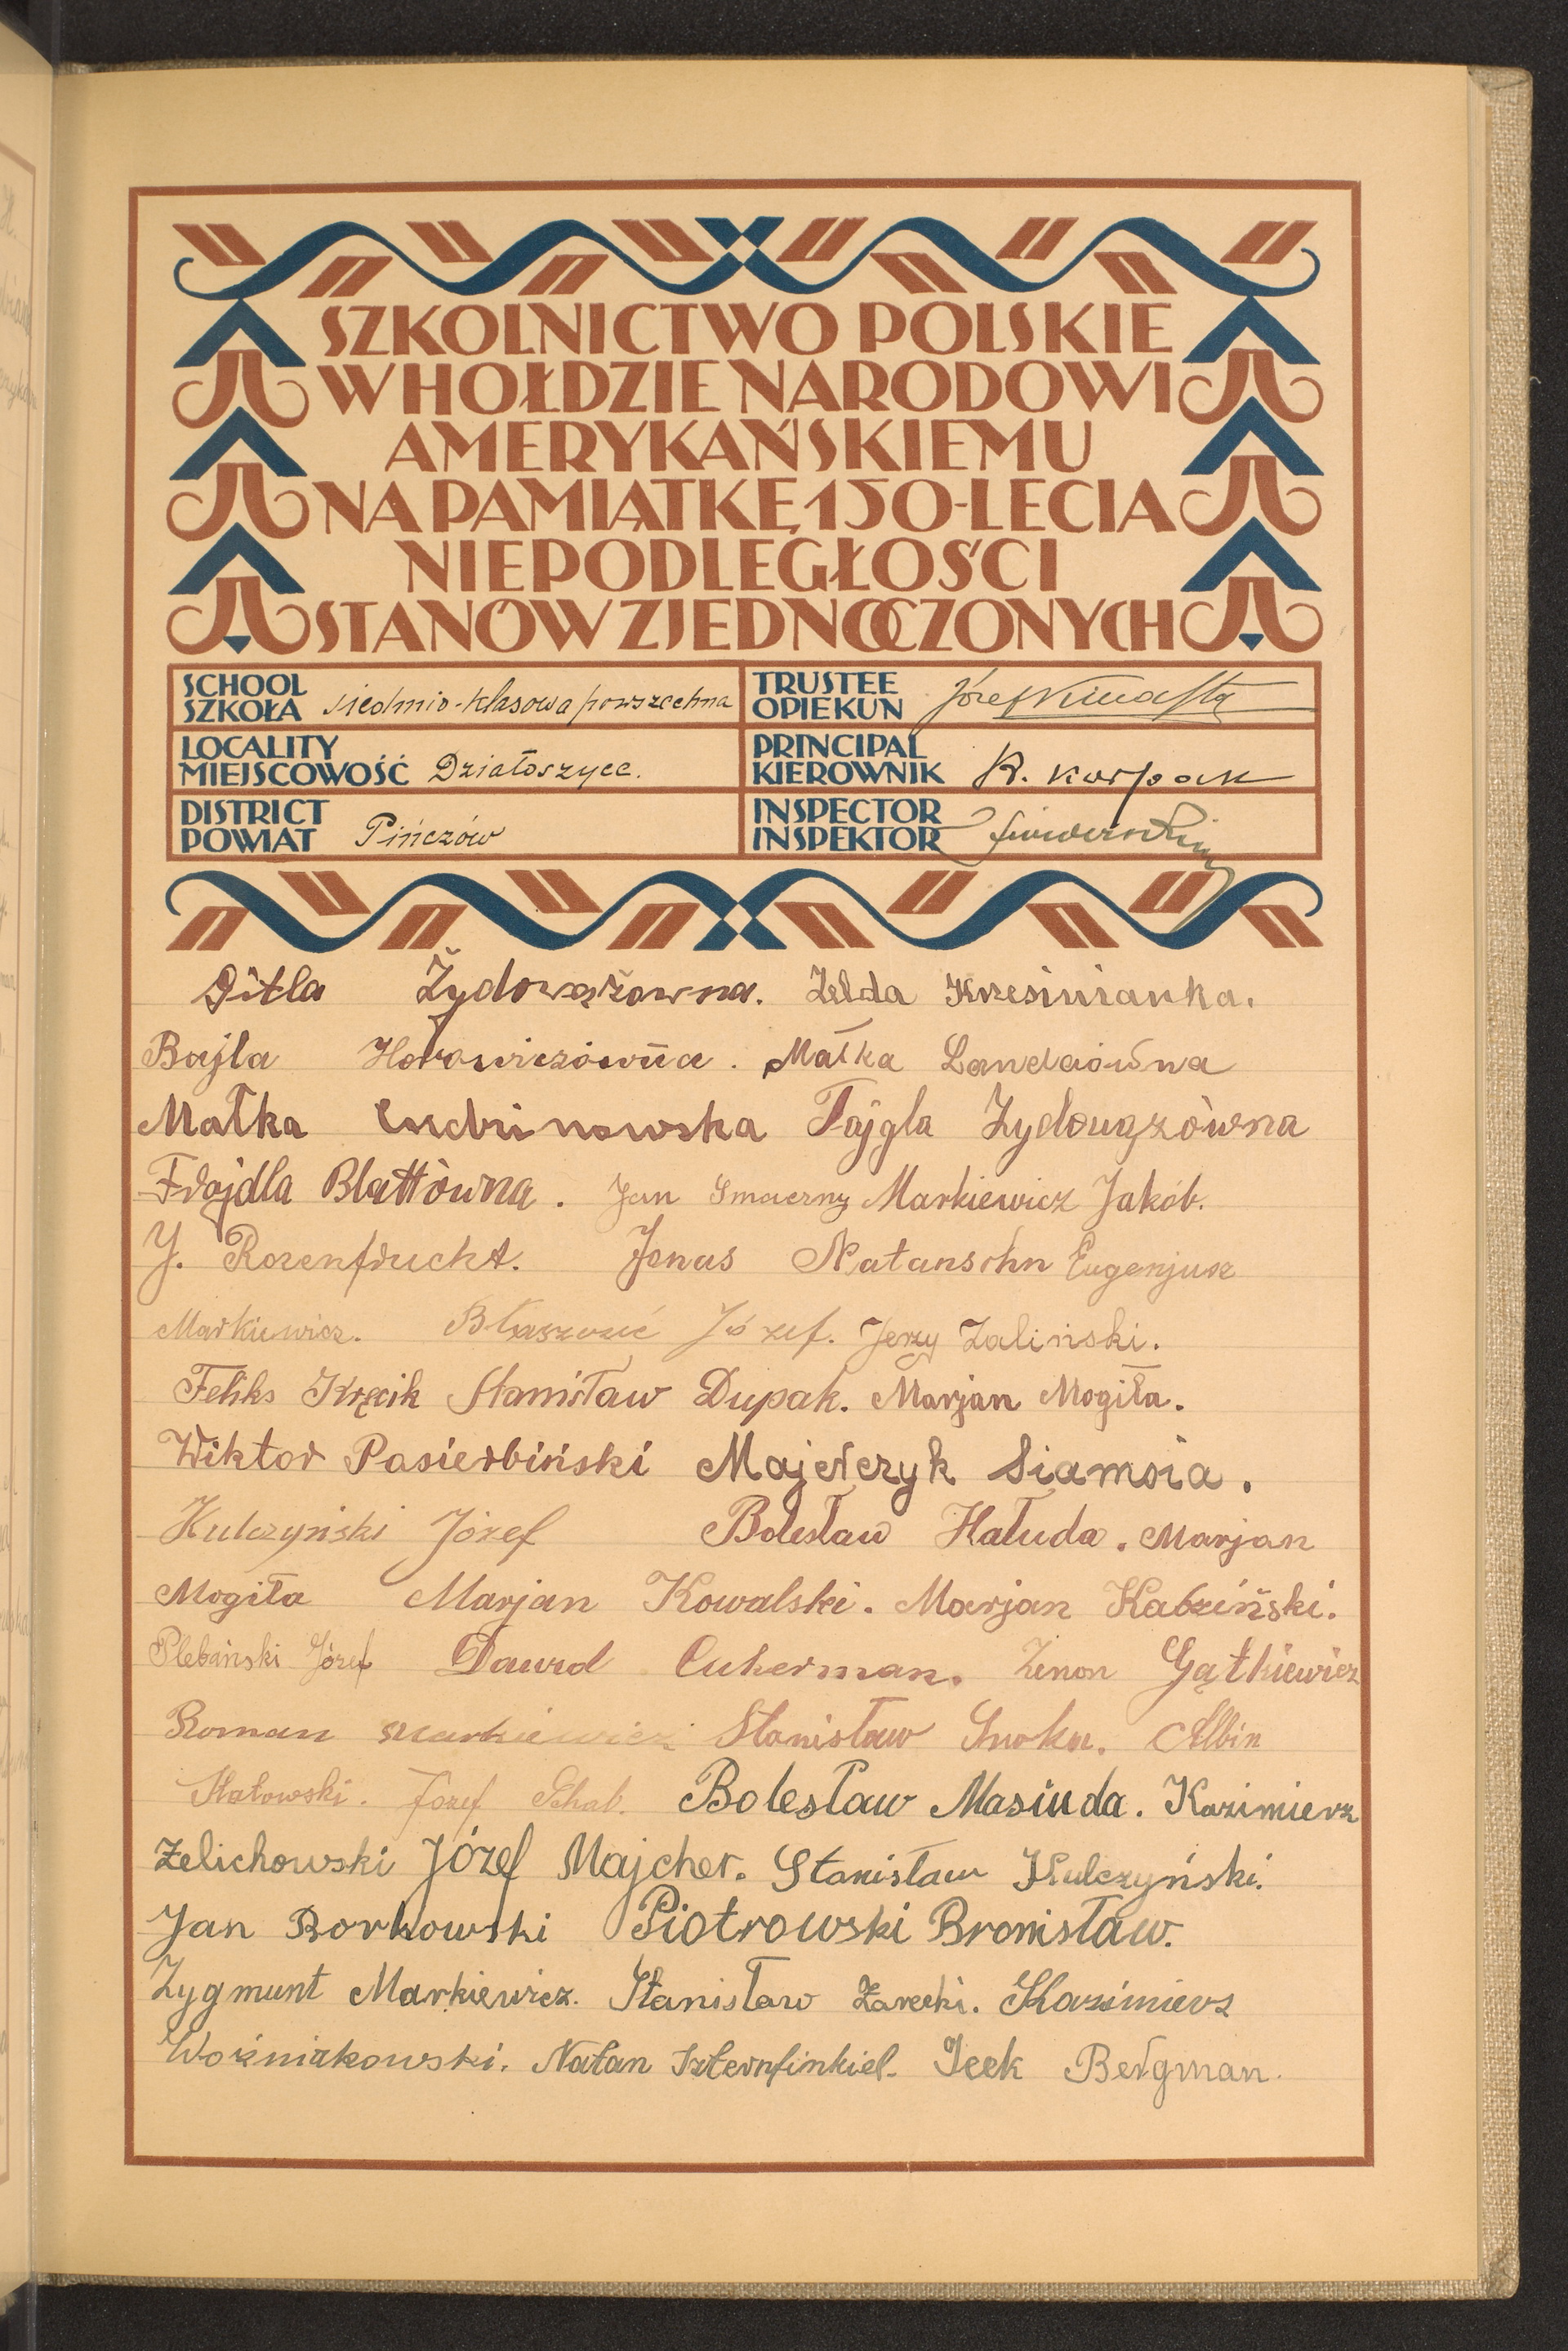 SZKOLNICTWO POLSKIE
W HOŁDZIE NARODOWI
AMERYKAŃSKIEMU
NA PAMIĄTKĘ 150-LECIA
NIEPODLEGŁOŚCI
STANÓW ZJEDNOCZONYCH
SCHOOL SZKOŁA siedmio-klasowa powszechna
TRUSTEE OPIEKUN Józef
LOCALITY MIEJSCOWOŚĆ Działoszyce.
PRINCIPAL KIEROWNIK R. Karpak
DISTRICT POWIAT Pińczów
INSPECTOR INSPEKTOR
Gitla Żydowążowna. Zelda
Bajla Horowiczówna. Małka Landaówna
Małka Tajgla Zydowązòwna
Frajdla Blattòwna. Jan Smaerny Markiewicz Jakób.
J. Rozenfrucht. Jonas Natansohn Eugenjusz
Markiewicz. Józef. Jerzy Zaliński.
Feliks Kręcik Stanisław Dupak. Marjan Mogiła.
Wiktor Pasierbiński Majeńczyk
Kulczyński Józef Bolesław Hałuda. Marjan
Mogiła Marjan Kowalski. Marjan Kabziński.
Plebański Józef Dawid Cukerman. Zenon Gątkiewicz
Roman Markiewicz Stanisław Albin
Józef Bolesław Masiuda. Kazimierz
Zelichowski Józef Majcher. Stanisław Kulczyński.
Jan Borkowski Piotrowski Bronisław.
Zygmunt Markiewicz. Stanisław Zarecki. Kazimierz
Woźniakowski. Natan Szternfinkiel. Icek Bergman.